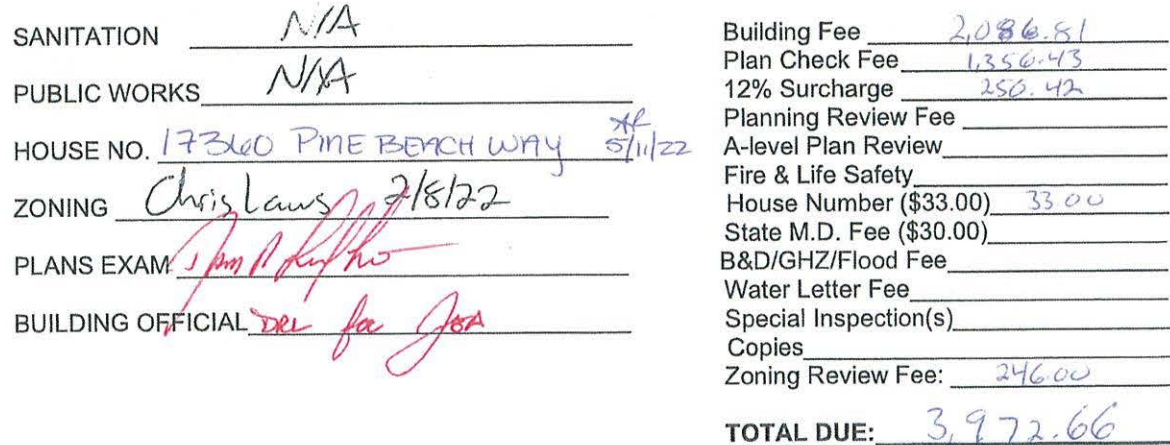 SANITATION N/A
PUBLIC WORKS N/A
HOUSE NO. 17360 PINE BEACH WAY 5/11/22
ZONING Chris Laws 2/8/22
PLANS EXAM
BUILDING OFFICIAL DRL for
Building Fee 2,086.81
Plan Check Fee 1,356.43
12% Surcharge 250.42
Planning Review Fee
A-level Plan Review
Fire & Life Safety
House Number ($33.00) 33.00
State M.D. Fee ($30.00)
B&D/GHZ/Flood Fee
Water Letter Fee
Special Inspection(s)
Copies
Zoning Review Fee: 246.00
TOTAL DUE: 3,972.66